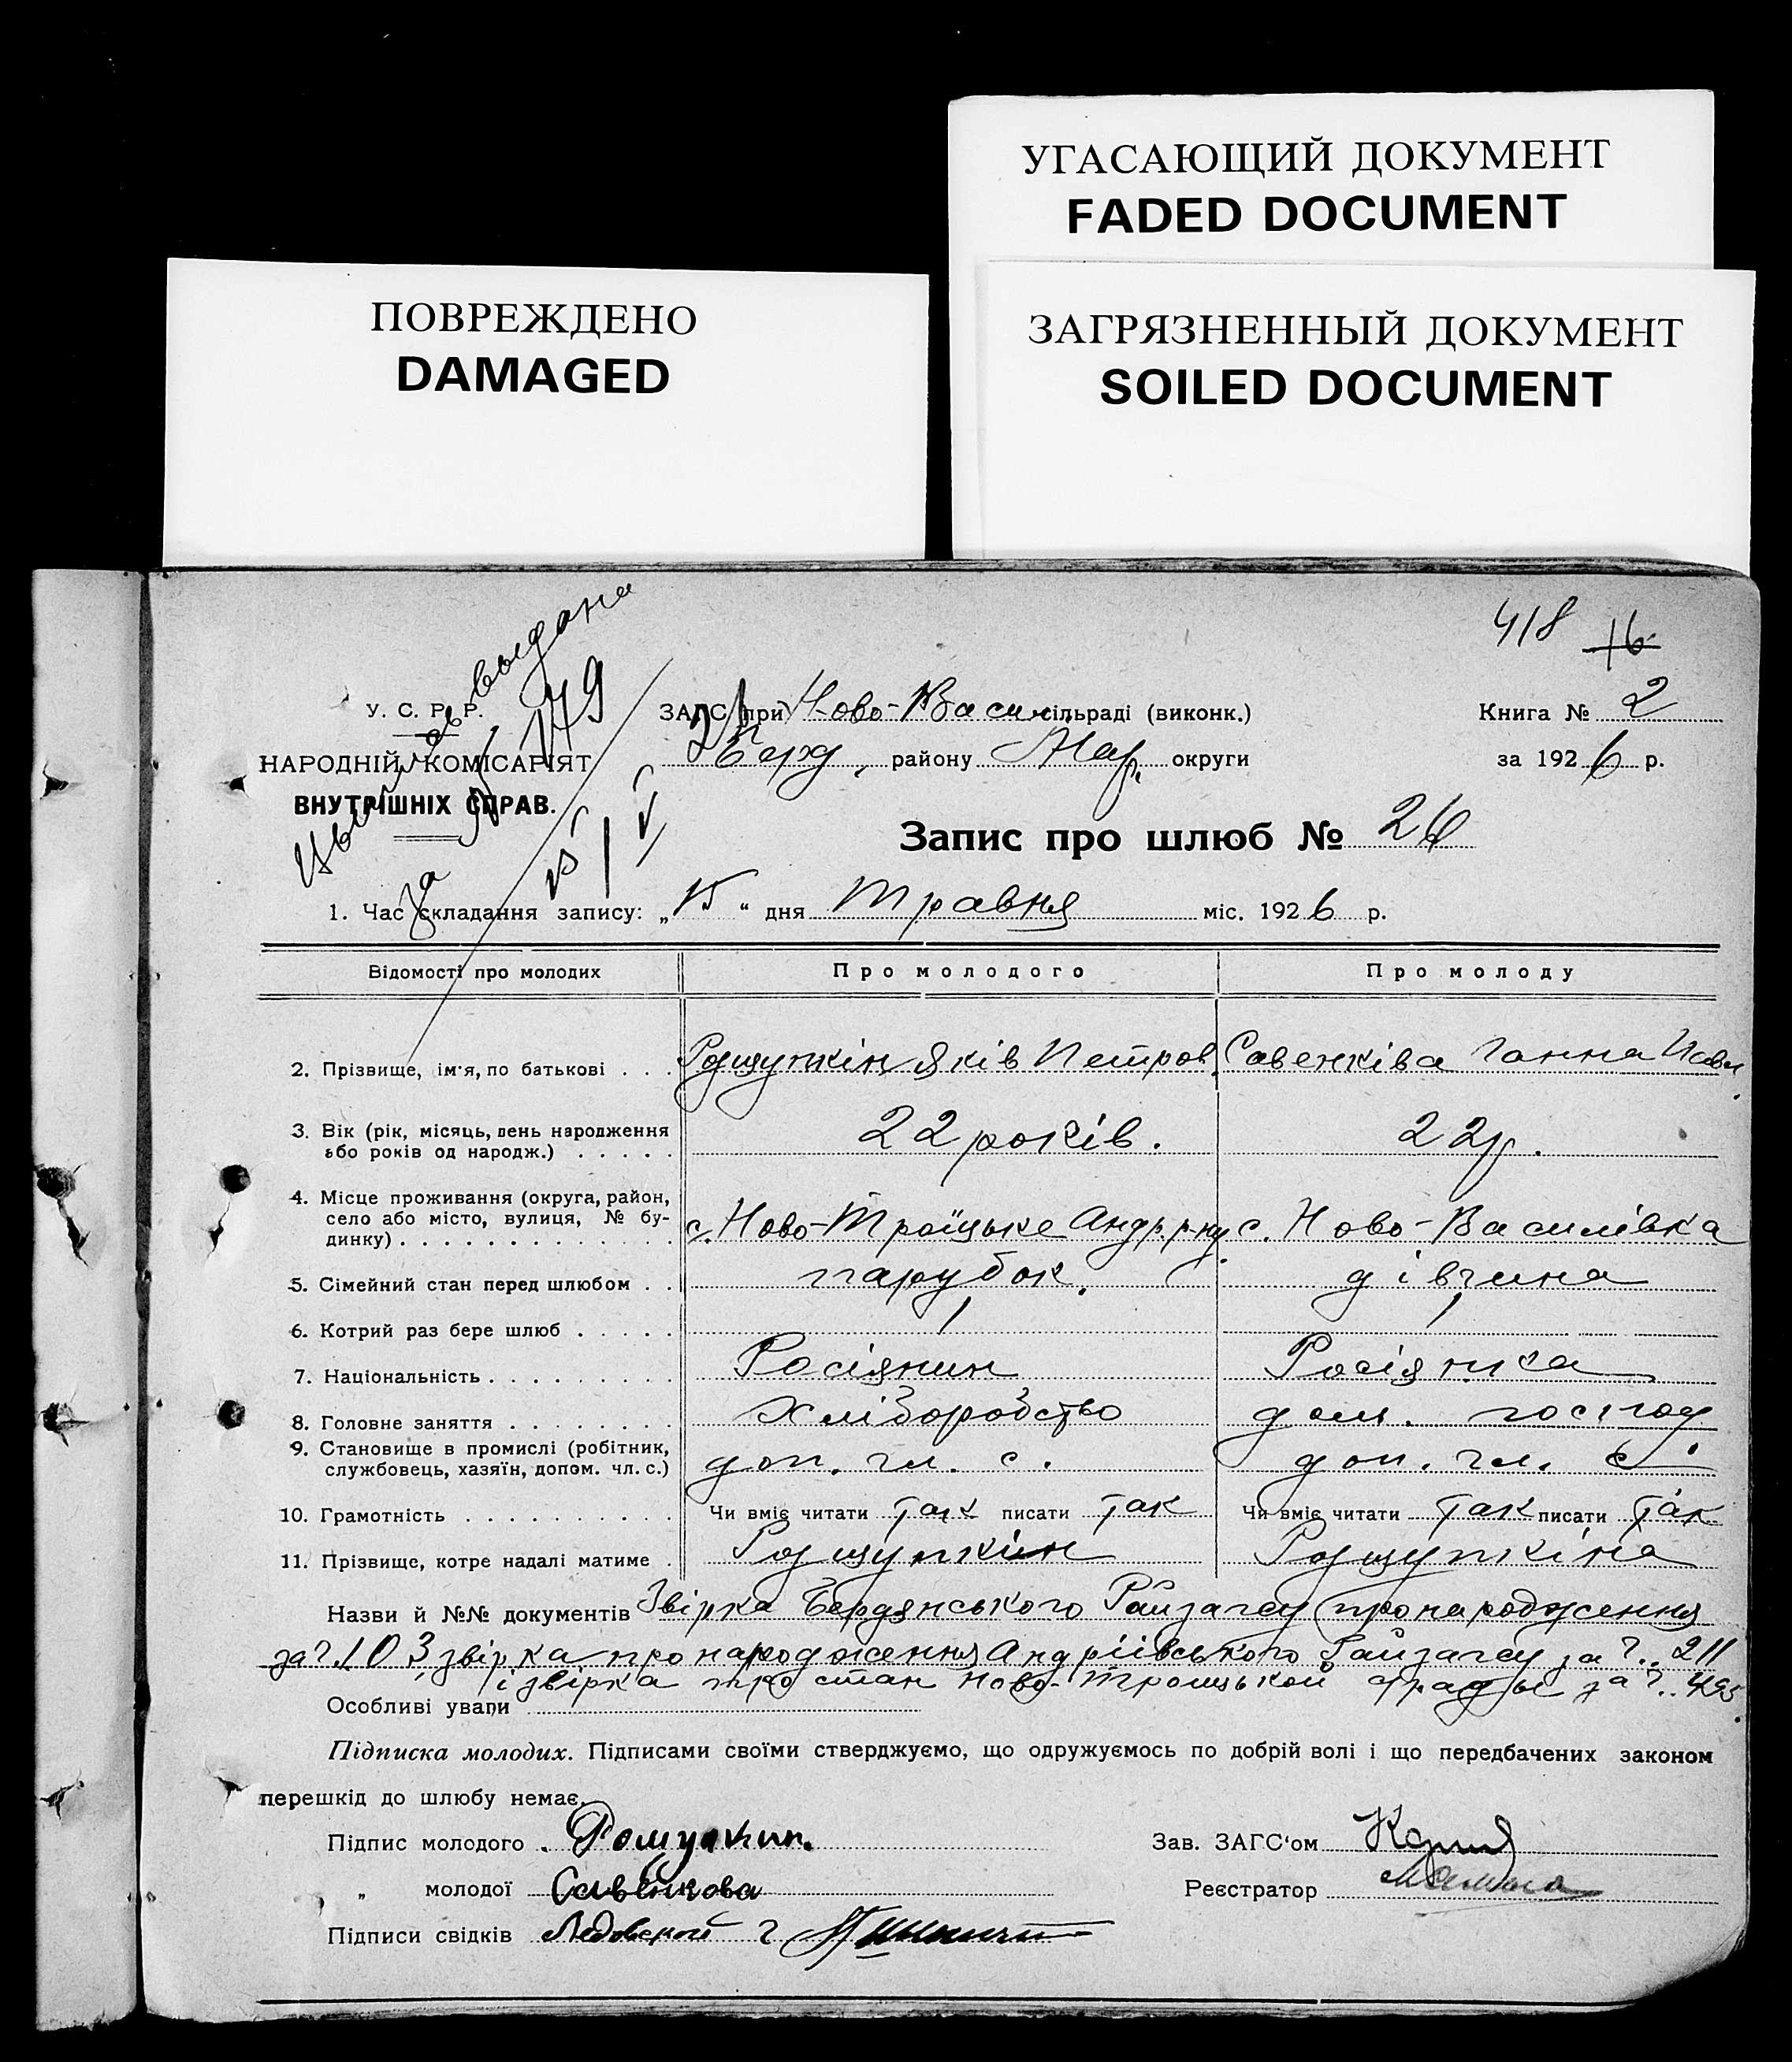 УГАСАЮЩИЙ ДОКУМЕНТ
FADED DOCUMENT
ПОВРЕЖДЕНО
DAMAGED
ЗАГРЯЗНЕННЫЙ ДОКУМЕНТ
SOILED DOCUMENT
418 16
выдана
за 149
15/V
У. С. Р. Р.
НАРОДНІЙ КОМІСАРІЯТ
ВНУТРІШНІХ СПРАВ.
ЗАГС при Ново-Васи сільраді (виконк.)
Берд, району Мар. округи
Книга № 2
за 1926 р.
Запис про шлюб № 26
1. Час складання запису: „15“ дня Травня міс. 1926 р.
Відомості про молодих Про молодого Про молоду
2. Прізвище, ім'я, по батькові . . . Рощупкін Яків Петров. Савенківа Ганна Павл.
3. Вік (рік, місяць, день народження або років од народж.) . . . . . 22 років. 22 р.
4. Місце проживання (округа, район, село або місто, вулиця, № будинку) . . . с. Ново-Троїцьке Андр. р-ну с. Ново-Василівка
5. Сімейний стан перед шлюбом . . парубок. дівчина
6. Котрий раз бере шлюб . . . . . 1 1
7. Національність . . . . . . . . . Росіянин Росіянка
8. Головне заняття . . . . . . . . Хліборобство дом. господ.
9. Становище в промислі (робітник, службовець, хазяїн, допом. чл. с.) доп. чл. с. доп. чл. с.
10. Грамотність . . . . . . . . . . Чи вміє читати так писати так Чи вміє читати так писати так
11. Прізвище, котре надалі матиме . Рощупкін Рощупкіна
Назви й №№ документів Звірка Бердянського Райзагсу про народження
за ч. 103 звірка про народження Андріївського Райзагсу за ч. 211
і звірка про стан Ново-Троицькой с/рады за ч. 495.
Особливі уваги
Підписка молодих. Підписами своїми стверджуємо, що одружуємось по добрій волі і що передбачених законом
перешкід до шлюбу немає.
Підпис молодого . Рощупкин.
„ молодої Савенкова
Підписи свідків
Зав. ЗАГС'ом
Реєстратор